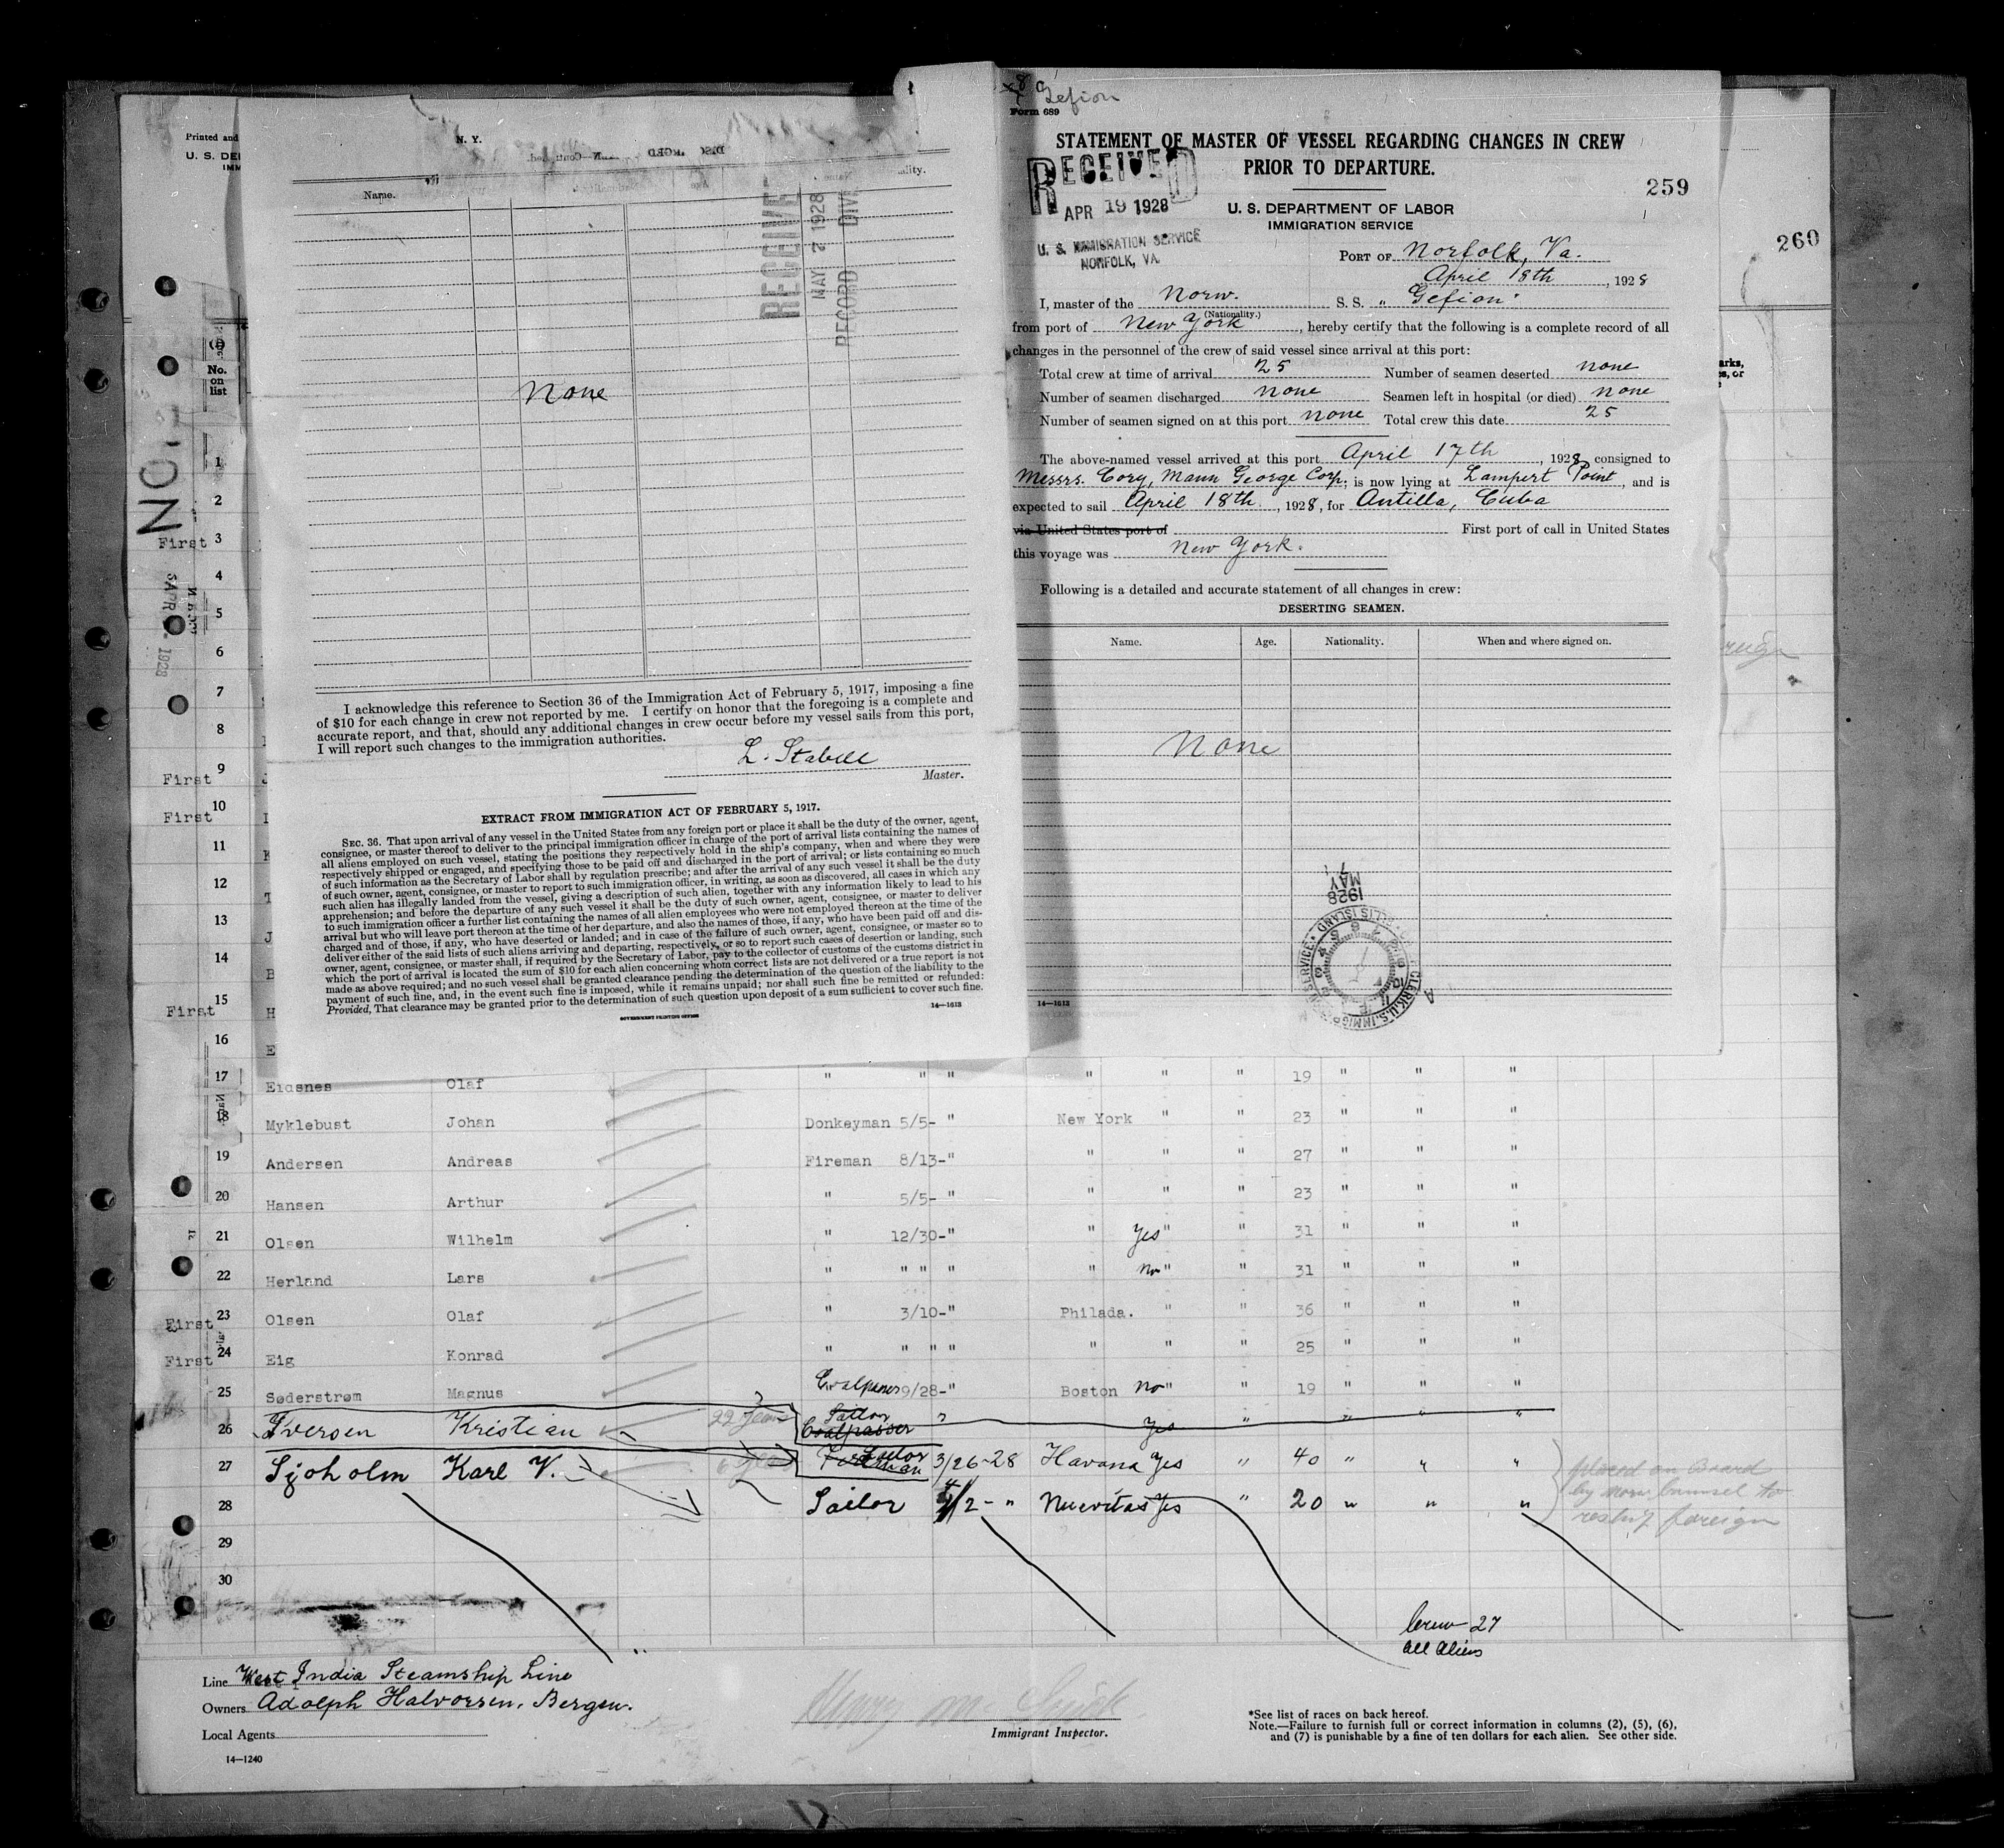 Printed and
U. S. DE
IMM
N. Y.
Name.
None
RECEIVE
MAY 7 1928
RECORD DIVI
I acknowledge this reference to Section 36 of the Immigration Act of February 5, 1917, imposing a fine
of $10 for each change in crew not reported by me. I certify on honor that the foregoing is a complete and
accurate report, and that, should any additional changes in crew occur before my vessel sails from this port,
I will report such changes to the immigration authorities.
L. Stabell
Master.
EXTRACT FROM IMMIGRATION ACT OF FEBRUARY 5, 1917.
SEC. 36. That upon arrival of any vessel in the United States from any foreign port or place it shall be the duty of the owner, agent,
consignee, or master thereof to deliver to the principal immigration officer in charge of the port of arrival lists containing the names of
all aliens employed on such vessel, stating the positions they respectively hold in the ship's company, when and where they were
respectively shipped or engaged, and specifying those to be paid off and discharged in the port of arrival; or lists containing so much
of such information as the Secretary of Labor shall by regulation prescribe; and after the arrival of any such vessel it shall be the duty
of such owner, agent, consignee, or master to report to such immigration officer, in writing, as soon as discovered, all cases in which any
such alien has illegally landed from the vessel, giving a description of such alien, together with any information likely to lead to his
apprehension; and before the departure of any such vessel it shall be the duty of such owner, agent, consignee, or master to deliver
to such immigration officer a further list containing the names of all alien employees who were not employed thereon at the time of the
arrival but who will leave port thereon at the time of her departure, and also the names of those, if any, who have been paid off and dis-
charged and of those, if any, who have deserted or landed; and in case of the failure of such owner, agent, consignee, or master so to
deliver either of the said lists of such aliens arriving and departing, respectively, or so to report such cases of desertion or landing, such
owner, agent, consignee, or master shall, if required by the Secretary of Labor, pay to the collector of customs of the customs district in
which the port of arrival is located the sum of $10 for each alien concerning whom correct lists are not delivered or a true report is not
made as above required; and no such vessel shall be granted clearance pending the determination of the question of the liability to the
payment of such fine, and, in the event such fine is imposed, while it remains unpaid; nor shall such fine be remitted or refunded:
Provided, That clearance may be granted prior to the determination of such question upon deposit of a sum sufficient to cover such fine.
GOVERNMENT PRINTING OFFICE
14—1613
Gefion
Form 689
STATEMENT OF MASTER OF VESSEL REGARDING CHANGES IN CREW
PRIOR TO DEPARTURE.
RECEIVED
APR 19 1928
U. S. IMMIGRATION SERVICE
NORFOLK, VA.
259
260
U. S. DEPARTMENT OF LABOR
IMMIGRATION SERVICE
PORT OF Norfolk, Va.
April 18th, 1928
I, master of the Norw. S. S. "Gefion"
(Nationality.)
from port of New York, hereby certify that the following is a complete record of all
changes in the personnel of the crew of said vessel since arrival at this port:
Total crew at time of arrival 25 Number of seamen deserted none
Number of seamen discharged none Seamen left in hospital (or died) none
Number of seamen signed on at this port none Total crew this date 25
The above-named vessel arrived at this port April 17th, 1928 consigned to
Messrs. Cory, Mann George Corp; is now lying at Lampert Point, and is
expected to sail April 18th, 1928, for Antilla, Cuba
via United States port of First port of call in United States
this voyage was New York.
Following is a detailed and accurate statement of all changes in crew:
DESERTING SEAMEN.
Name. Age. Nationality. When and where signed on.
None
MAY 7 1928
14—1613
No. on list
1
2
First 3
4
5
6
7
8
First 9
First 10
11
12
13
14
First 15
16
17 Eidsnes Olaf " " " " " " 19 " " "
18 Myklebust Johan Donkeyman 5/5- " New York " " 23 " " "
19 Andersen Andreas Fireman 8/13-" " " " 27 " " "
20 Hansen Arthur " 5/5- " " " " 23 " " "
21 Olsen Wilhelm " 12/30-" " Yes" " 31 " " "
22 Herland Lars " " " " " No" " 31 " " "
First 23 Olsen Olaf " 3/10-" Philada. " " 36 " " "
First 24 Eig Konrad " " " " " " " 25 " " "
25 Søderstrøm Magnus Coalpasser 9/28-" Boston No" " 19 " " "
26 Iversen Kristian 22 Years Sailor Coalpasser " Yes " " " "
27 Sjoholm Karl V. Sailor Fireman 3/26-28 Havana Yes " 40 " " "
28 Sailor 4/2- " Nuevitas Yes " 20 " " "
placed on Board
by Norw. Counsel to
reship foreign
29
30
Crew 27
All Aliens
Line West India Steamship Line
Owners Adolph Halvorsen, Bergen.
Local Agents
Immigrant Inspector.
*See list of races on back hereof.
Note.—Failure to furnish full or correct information in columns (2), (5), (6),
and (7) is punishable by a fine of ten dollars for each alien. See other side.
14—1240